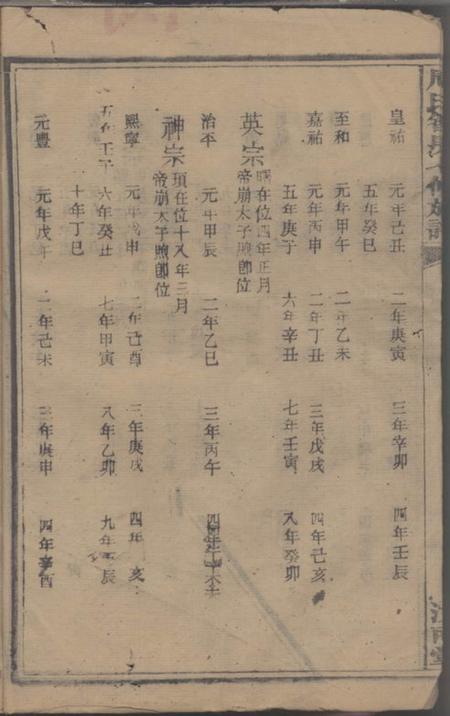 皇祐 元年己丑 二年庚寅 三年辛卯 四年壬辰
五年癸巳
至和 元年甲午 二年乙未
嘉祐 元年丙申 二年丁丑 三年戊戌 四年己亥
五年庚子 六年辛丑 七年壬寅 八年癸卯
英宗 在位四年正月
帝崩太子煦卽位
治平 元年甲辰 二年乙巳 三年丙午
神宗 頊在位十八年三月
帝崩太子煦卽位
熙寧 元年 申 二年己酉 三年庚戌 四年 亥
五年壬子 六年癸丑 七年甲寅 八年乙卯 九年 辰
十年丁巳
元豐 元年戊午 二年己未 三年庚申 四年辛酉